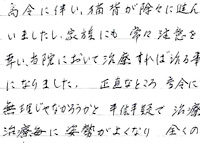 高令に伴い、猫背が除々に進ん
いましたし、家族にも常々注意を
幸い、当院において治療すれば"治る事
になりました。 正直なところ高令に
無理じゃなかろうかと半信半疑で治療
治療毎に姿勢がよくなり 全くの